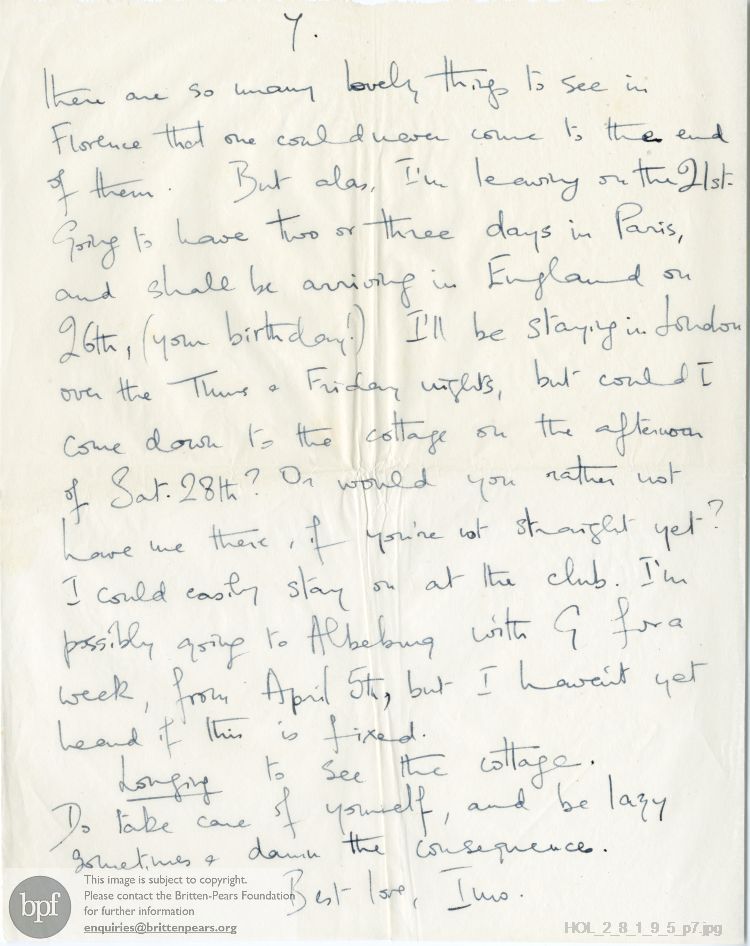 7.
there are so many lovely things to see in
Florence that one could never come to the end
of them. But alas, I'm leaving on the 21st.
Going to have two or three days in Paris,
and shall be arriving in England on
26th, (your birthday!) I'll be staying in London
over the Thurs & Friday nights, but could I
come down to the cottage on the afternoon
of Sat. 28th? Or would you rather not
have me there, if you're not straight yet?
I could easily stay on at the club. I'm
possibly going to Aldeburg with G for a
week, from April 5th, but I haven't yet
heard if this is fixed.
Longing to see the cottage.
Do take care of yourself, and be lazy
sometimes & damn the consequences.
Best love, Imo.
bpf
This image is subject to copyright.
Please contact the Britten-Pears Foundation
for further information
enquiries@brittenpears.org
HOL_2_8_1_9_5_p7.jpg